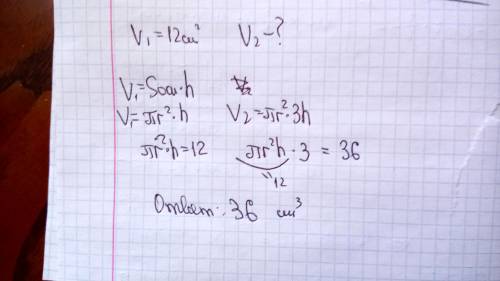 V₁ = 12 см³ V₂ - ?
V₁ = Sосн · h
V₁ = πr² · h V₂ = πr² · 3h
πr² · h = 12 πr²h · 3 = 36
12
Ответ: 36 см³